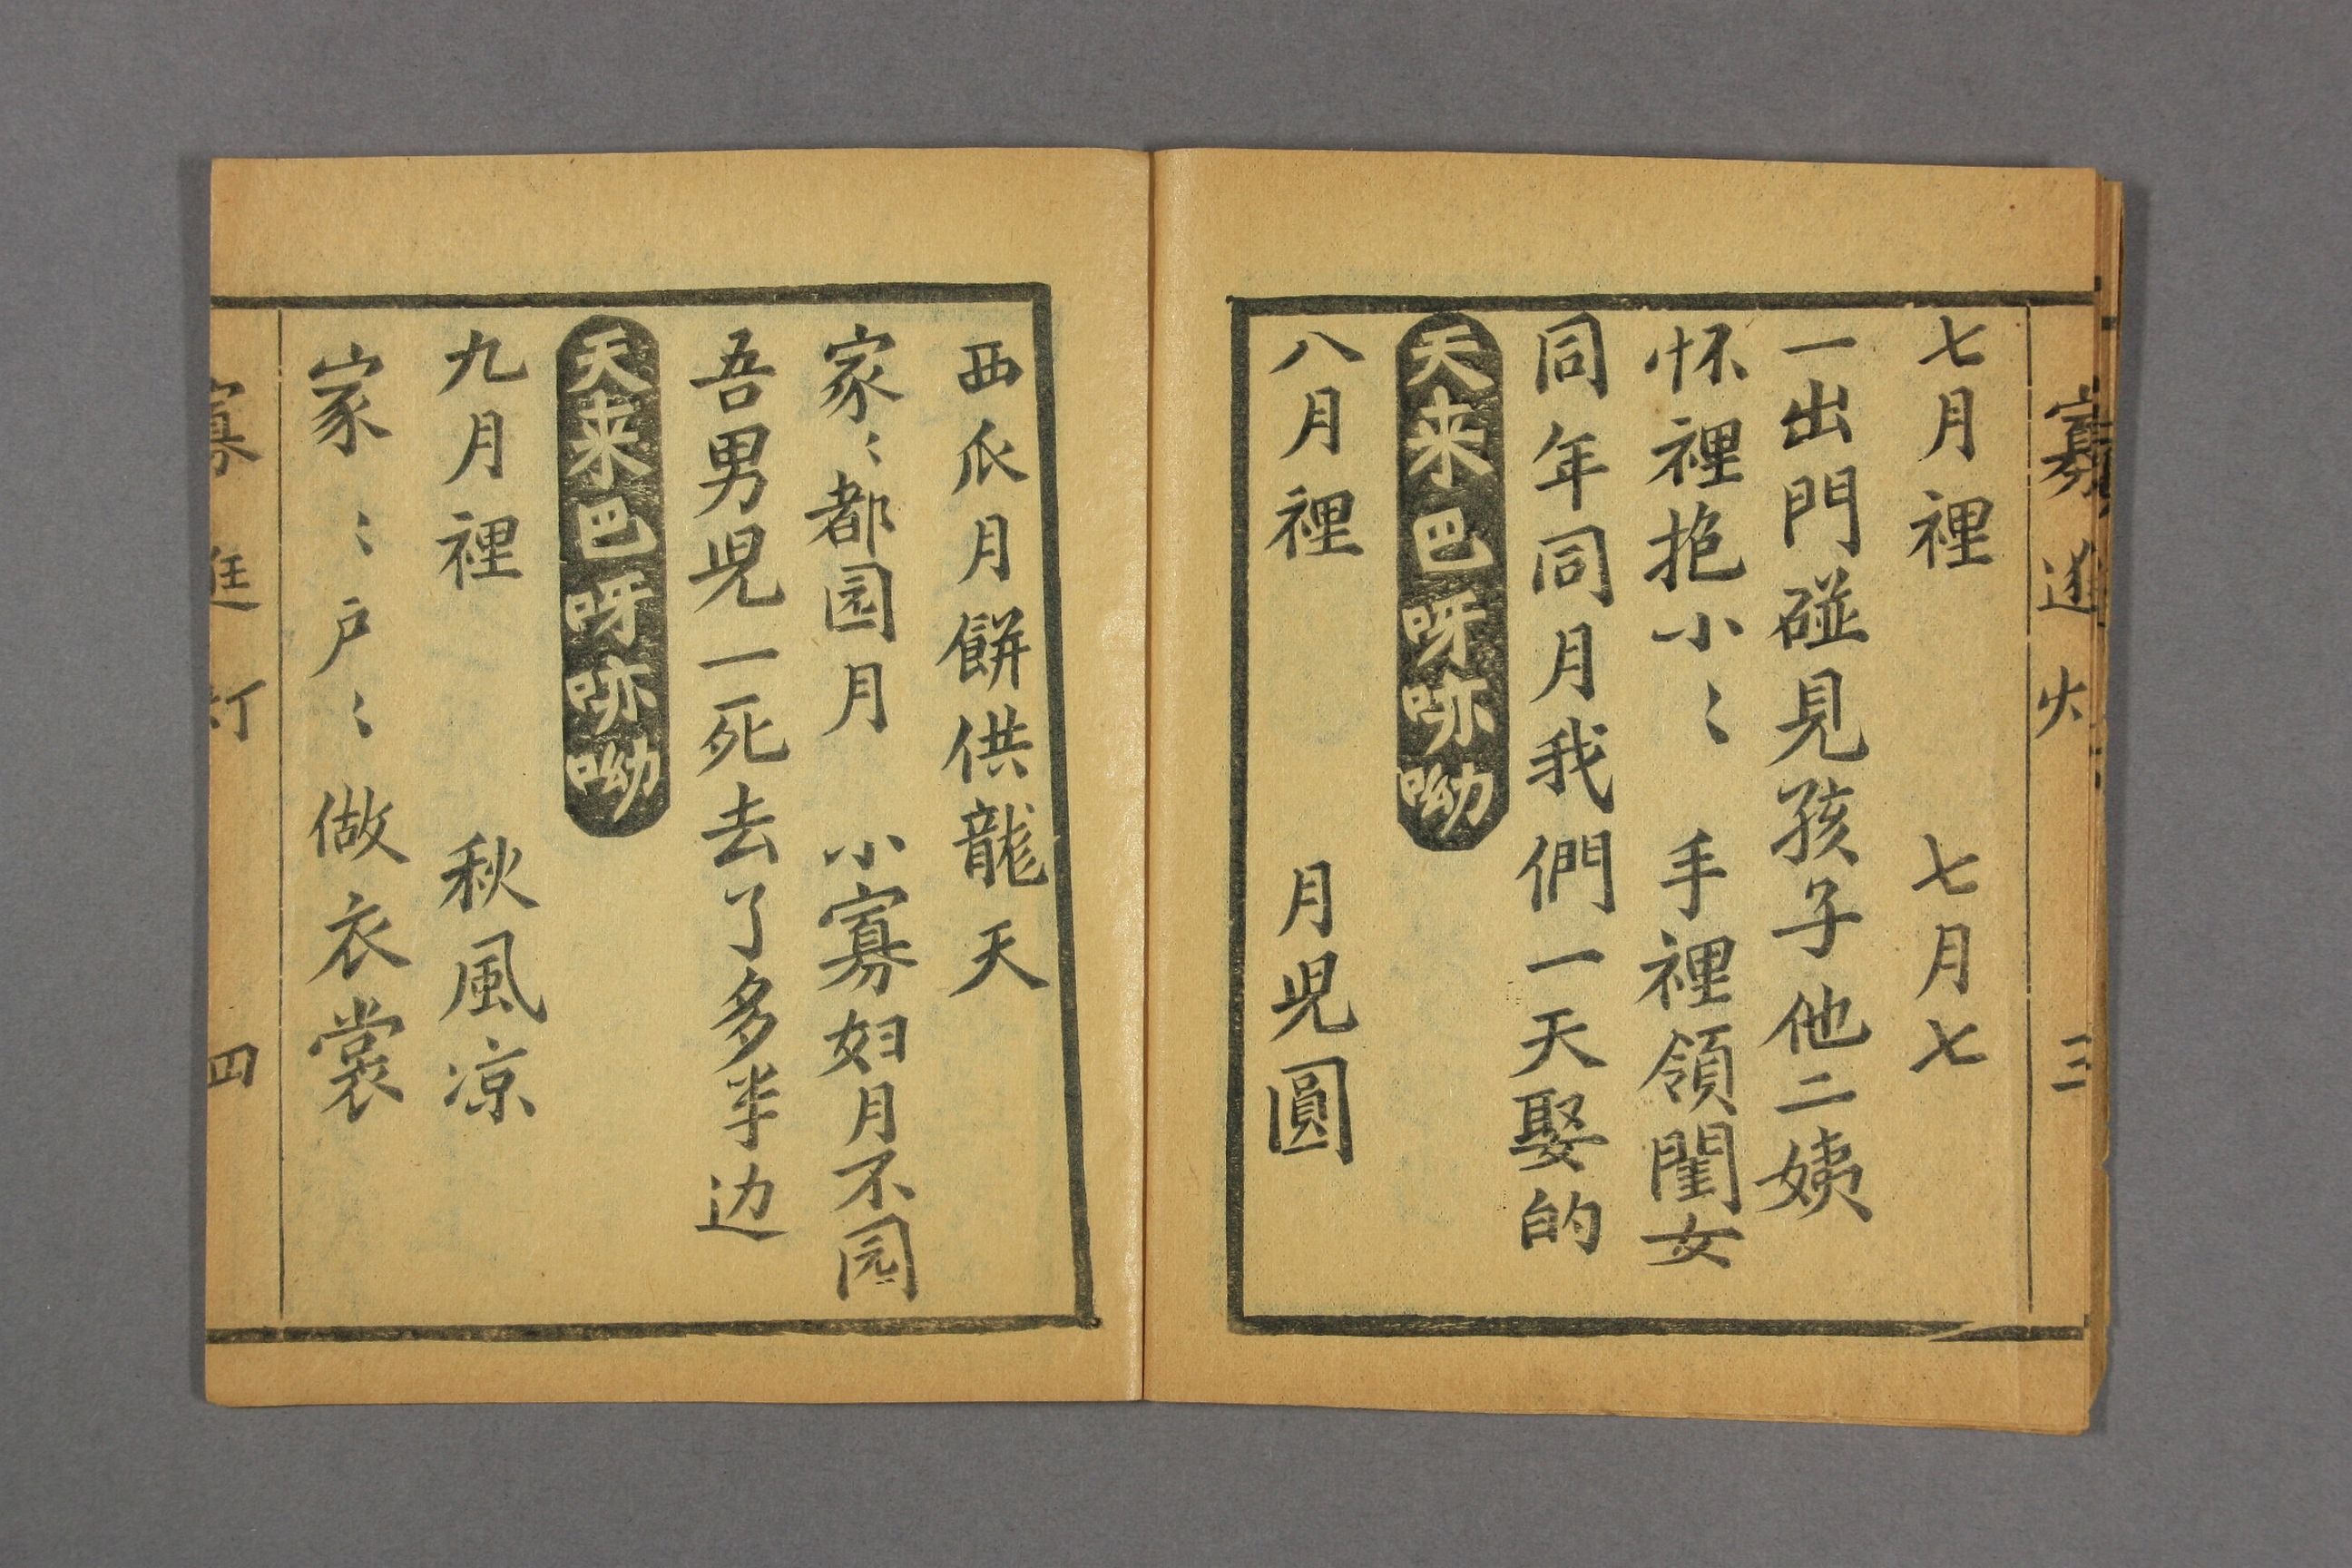 七月裡　七月七
一出門碰見孩子他二姨
怀裡抱小〻　手裡領閨女
同年同月我們一天娶的
天来巴呀呀呦
八月裡　月児圓
西瓜月餅供龍天
家〻都园月　小寡妇月不园
吾男児一死去了多半边
天来巴呀呀呦
九月裡　秋風凉
家〻戶〻做衣裳
四